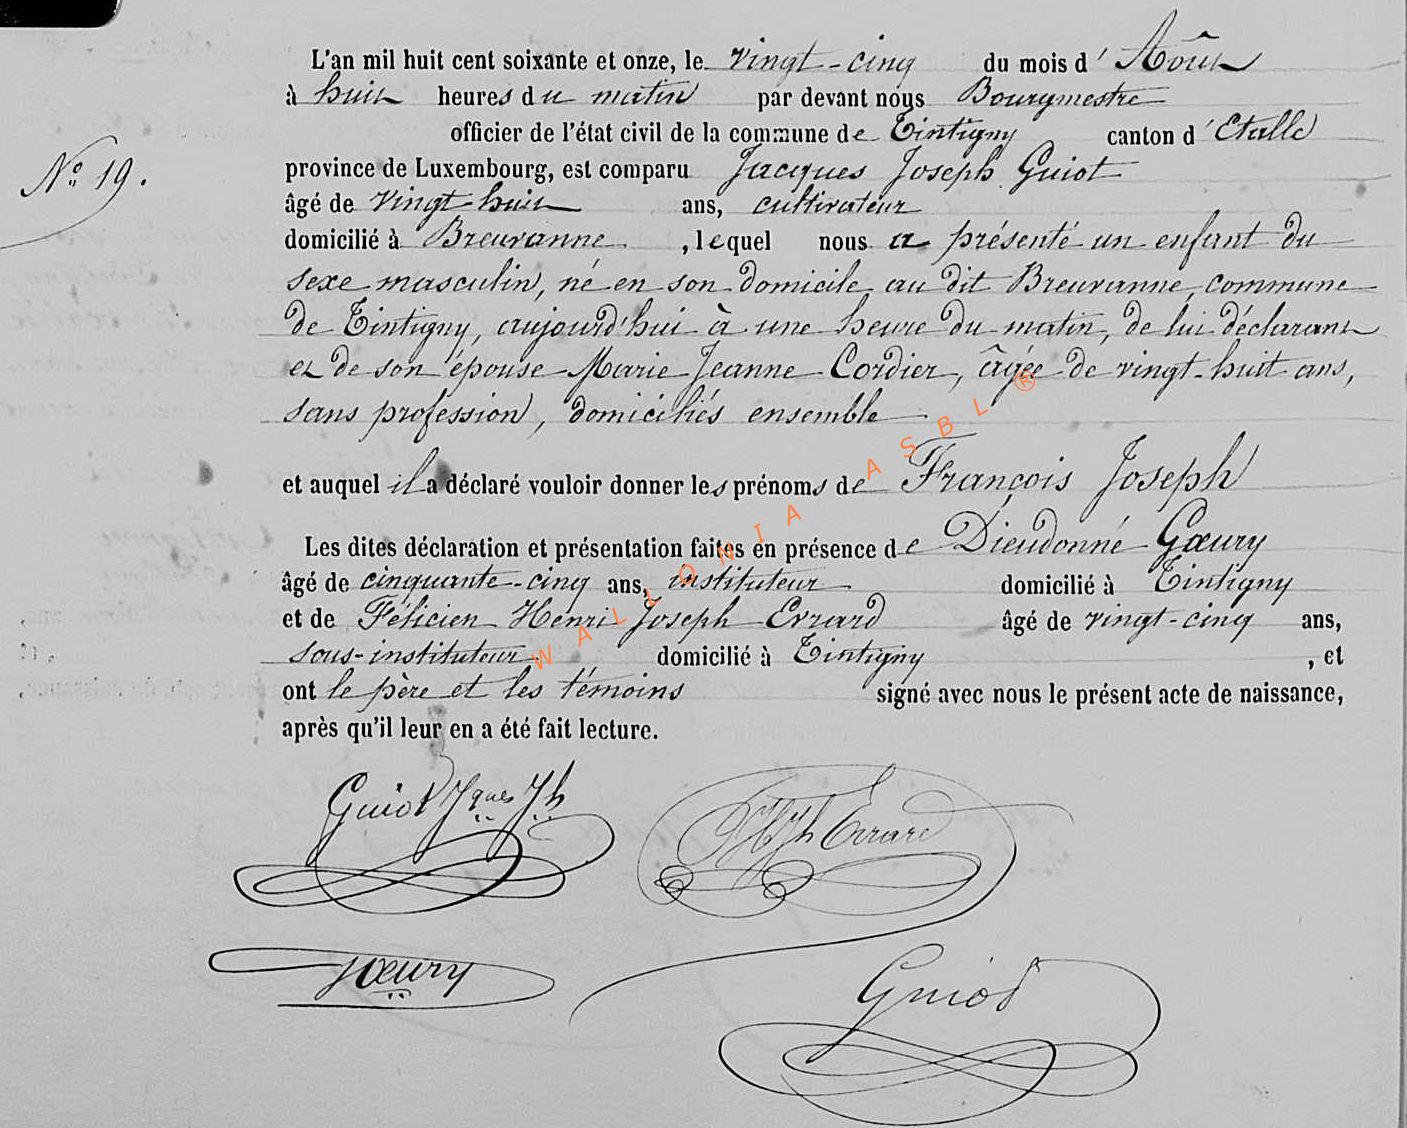 L'an mil huit cent soixante et onze, le vingt-cinq du mois d'Aôut
à huit heures du matin par devant nous Bourgmestre
officier de l'état civil de la commune de Tintigny canton d'Etalle
N° 19.
province de Luxembourg, est comparu Jacques Joseph Guiot
âgé de vingt-huit ans, cultivateur
domicilié à Breuvanne, lequel nous a présenté un enfant du
sexe masculin, né en son domicile au dit Breuvanne, commune
de Tintigny, aujourd'hui à une heure du matin, de lui déclarant
et de son épouse Marie Jeanne Cordier, âgée de vingt-huit ans,
sans profession, domiciliés ensemble
et auquel il a déclaré vouloir donner les prénoms de François Joseph
Les dites déclaration et présentation faites en présence de Dieudonné Gœury
âgé de cinquante-cinq ans, instituteur domicilié à Tintigny
et de Félicien Henri Joseph Errard âgé de vingt-cinq ans,
sous-instituteur domicilié à Tintigny, et
ont le père et les témoins signé avec nous le présent acte de naissance,
après qu'il leur en a été fait lecture.
Guiot Jques Jh
FHJh Errard
Gœury
Guiot
WALLONIA ASBL ®